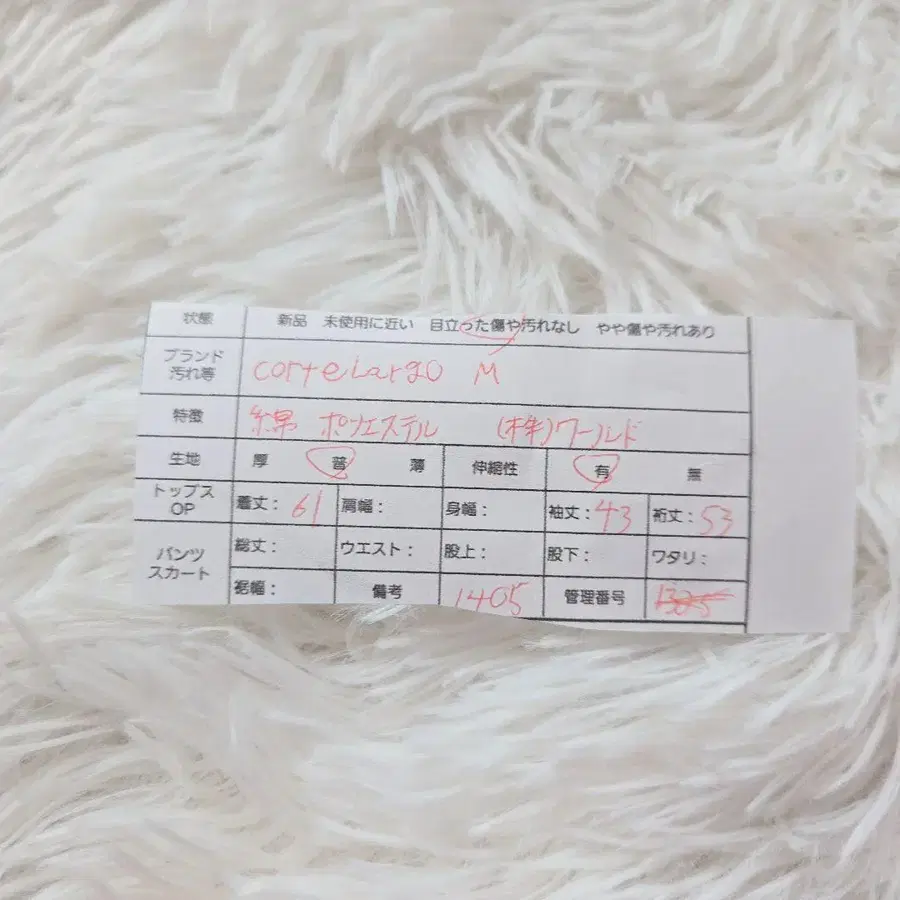 状態 新品 未使用に近い 目立った傷や汚れなし やや傷や汚れあり
ブランド 汚れ等 corteLargo M
特徴 綿 ポリエステル (株)ワールド
生地 厚 普 薄 伸縮性 有 無
トップス OP 着丈: 61 肩幅: 身幅: 袖丈: 43 裄丈: 53
パンツ スカート 総丈: ウエスト: 股上: 股下: ワタリ:
裾幅: 備考 1405 管理番号